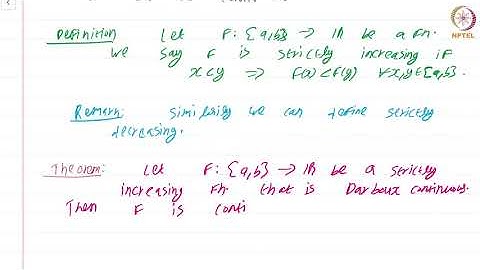 NPTEL
Definition Let F: [a,b] → ℝ be a Fn.
We say F is strictly increasing if
x<y ⟹ F(x) < F(y) ∀x,y∈[a,b].
Remark: Similarly we can define strictly
decreasing.
Theorem: Let F: [a,b] → ℝ be a strictly
increasing Fn that is Darboux continuous.
Then F is conti